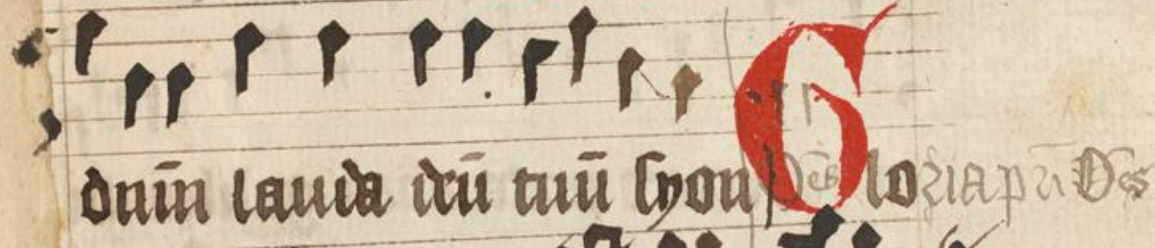 dnīm lauda deū tuū syon Gloria pri Oēs